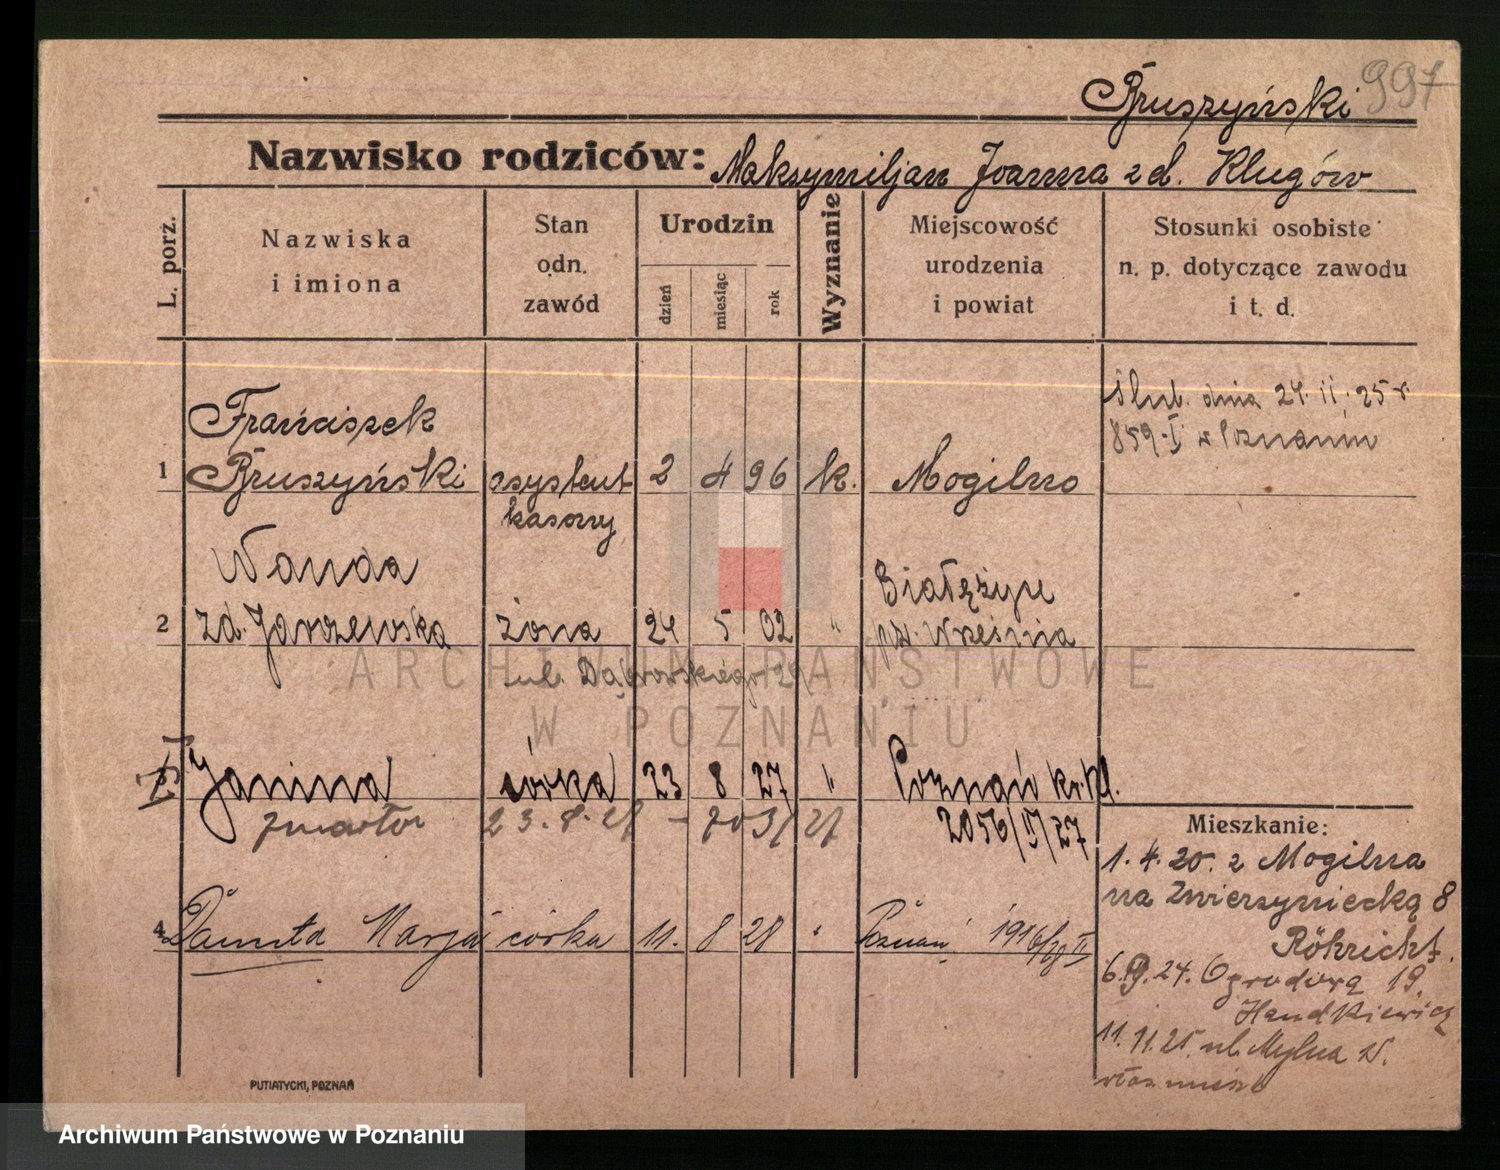 997
Bruszyński
Nazwisko rodziców: Maksymiljan Joanna zd. Klugów
L. porz.
Nazwiska
i imiona
Stan
odn.
zawód
Urodzin
dzień
miesiąc
rok
Wyznanie
Miejscowość
urodzenia
i powiat
Stosunki osobiste
n. p. dotyczące zawodu
i t. d.
ślub. dnia 24.11.25 r.
859-I w Poznaniu
Franciszek
1 Bruszyński asystent 2 4 96 k. Mogilno
kasowy
Wanda Białężyce
2 zd. Jarczewska żona 24 5 02 " pw. Września
ul. Dąbrowskiego 29
ARCHIWUM PAŃSTWOWE
W POZNANIU
Janina córka 23 8 27 " Poznań
zmarła 23.8.27 2056/II/27
4 Danuta Marja córka 11. 8 28 " Poznań
Mieszkanie:
1.4.20. z Mogilna
na Zwierzyniecką 8
Röhricht.
6.9.24. Ogrodowa 19.
Handkiewicz
11.11.25. ul. Mylna
PUTIATYCKI, POZNAŃ
Archiwum Państwowe w Poznaniu